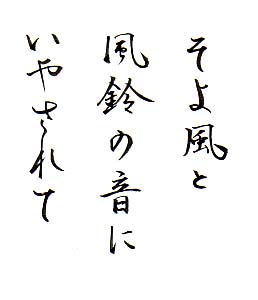 そよ風と
風鈴の音に
いやされて